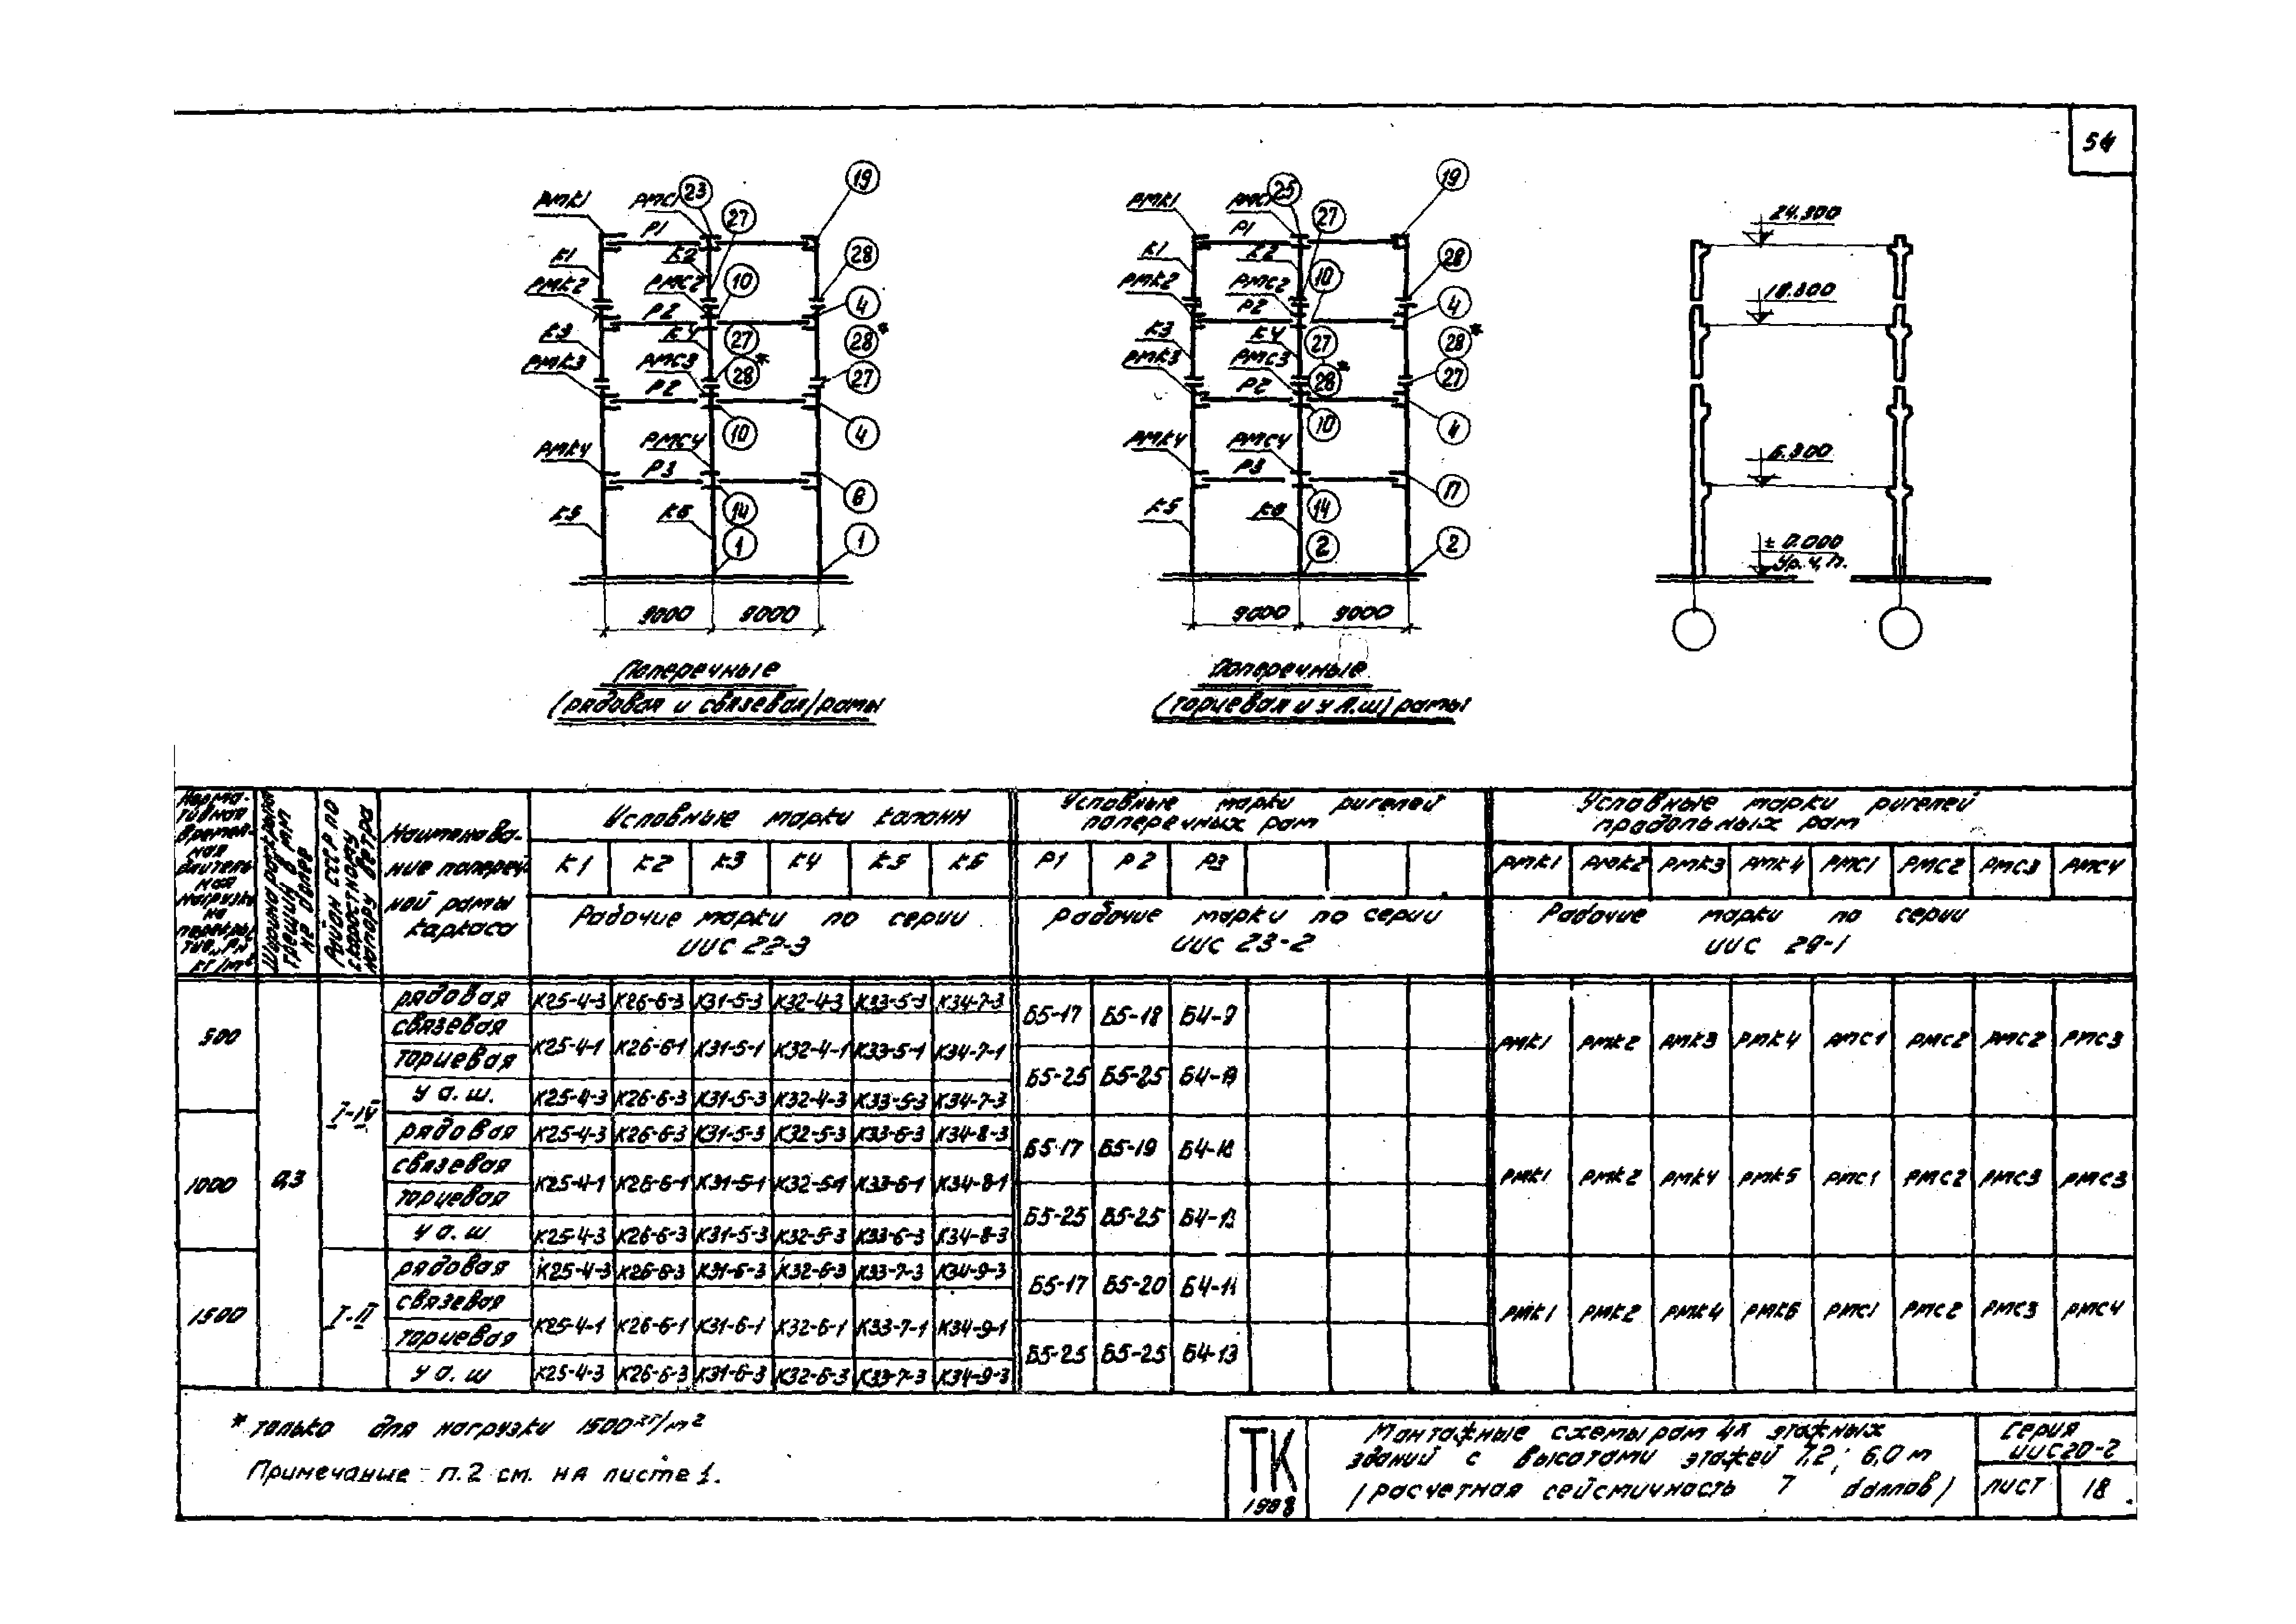 54
РМК1
РМС1
23
19
27
Р1
К1
К2
28
РМК2
РМС2
10
4
Р2
К3
К4
27
28*
РМК3
РМС3
28*
27
Р2
10
4
РМК4
РМС4
Р3
8
К5
К6
14
1
1
9000
9000
Поперечные
(рядовая и связевая) рамы
РМК1
РМС1
25
19
27
Р1
К1
К2
28
РМК2
РМС2
10
4
Р2
К3
К4
27
28*
РМК3
РМС3
28*
27
Р2
10
4
РМК4
РМС4
Р3
17
К5
К6
14
2
2
9000
9000
Поперечные
(торцевая и у А.Ш) рамы
24.300
18.300
6.300
± 0.000
Ур. ч. п.
Норма-
тивная
времен-
ная
длитель-
ная
нагрузка
на
перекры-
тие, Рн
кг/м²
Ширина раскрытия
трещин в мм
не более
Район СССР по
скоростному
напору ветра
Наименова-
ние попереч-
ной рамы
каркаса
Условные марки колонн
К1 К2 К3 К4 К5 К6
Рабочие марки по серии
ИИС 22-3
Условные марки ригелей
поперечных рам
Р1 Р2 Р3
Рабочие марки по серии
ИИС 23-2
Условные марки ригелей
продольных рам
РМК1 РМК2 РМК3 РМК4 РМС1 РМС2 РМС3 РМС4
Рабочие марки по серии
ИИС 29-1
500
0,3
I-IV
рядовая К25-4-3 К26-6-3 К31-5-3 К32-4-3 К33-5-3 К34-7-3
связевая
торцевая
К25-4-1 К26-6-1 К31-5-1 К32-4-1 К33-5-1 К34-7-1
у а. ш. К25-4-3 К26-6-3 К31-5-3 К32-4-3 К33-5-3 К34-7-3
Б5-17 Б5-18 Б4-9
Б5-25 Б5-25 Б4-13
РМК1 РМК2 РМК3 РМК4 РМС1 РМС2 РМС2 РМС3
1000
рядовая К25-4-3 К26-6-3 К31-5-3 К32-5-3 К33-6-3 К34-8-3
связевая
торцевая
К25-4-1 К26-6-1 К31-5-1 К32-5-1 К33-6-1 К34-8-1
у а. ш К25-4-3 К26-6-3 К31-5-3 К32-5-3 К33-6-3 К34-8-3
Б5-17 Б5-19 Б4-10
Б5-25 Б5-25 Б4-13
РМК1 РМК2 РМК4 РМК5 РМС1 РМС2 РМС3 РМС3
1500
I-II
рядовая К25-4-3 К26-6-3 К31-6-3 К32-6-3 К33-7-3 К34-9-3
связевая
торцевая
К25-4-1 К26-6-1 К31-6-1 К32-6-1 К33-7-1 К34-9-1
у а. ш К25-4-3 К26-6-3 К31-6-3 К32-6-3 К33-7-3 К34-9-3
Б5-17 Б5-20 Б4-11
Б5-25 Б5-25 Б4-13
РМК1 РМК2 РМК4 РМК6 РМС1 РМС2 РМС3 РМС4
* только для нагрузки 1500 кг/м²
Примечание п.2 см. на листе 1.
ТК
1968
Монтажные схемы рам 4х этажных
зданий с высотами этажей 7,2; 6,0 м
(расчетная сейсмичность 7 баллов)
Серия
ИИС20-2
лист 18